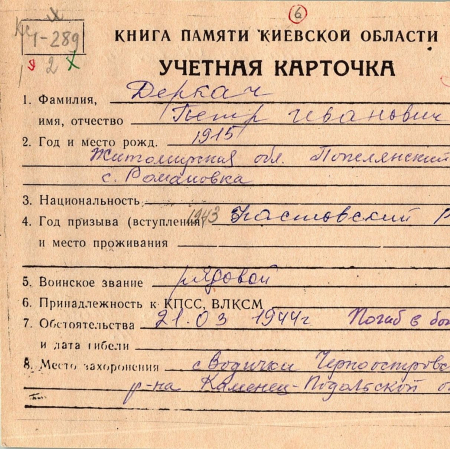 6
Т-289
2
КНИГА ПАМЯТИ КИЕВСКОЙ ОБЛАСТИ
УЧЕТНАЯ КАРТОЧКА
1. Фамилия, Деркач
имя, отчество Петр Иванович
2. Год и место рожд. 1915
Житомирская обл. Попелянский
с. Романовка
3. Национальность
4. Год призыва (вступления) 1943 Фастовский Р
и место проживания
5. Воинское звание рядовой
6. Принадлежность к КПСС, ВЛКСМ
7. Обстоятельства 21.03 1944г Погиб в бо
и дата гибели
8. Место захоронения с Водички Черноостровс
р-на Каменец-Подольской о